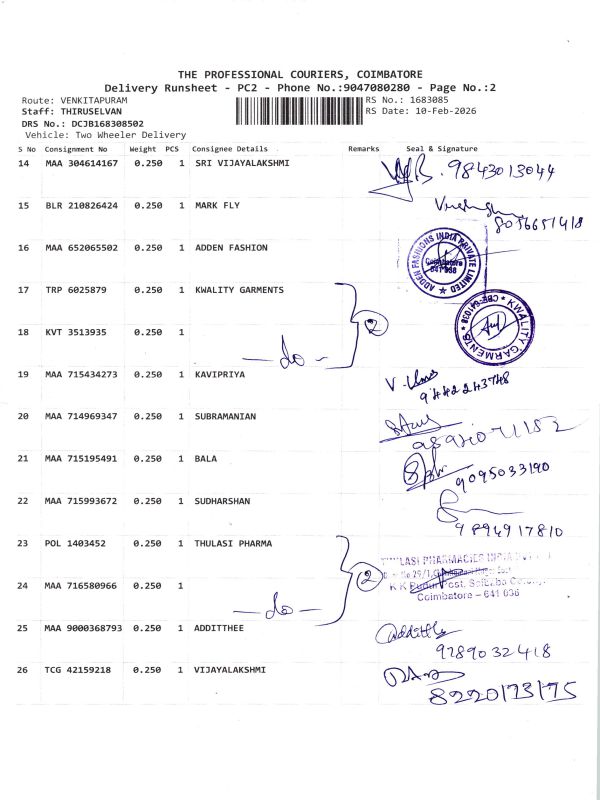 THE PROFESSIONAL COURIERS, COIMBATORE
Delivery Runsheet - PC2 - Phone No.:9047080280 - Page No.:2
Route: VENKITAPURAM
RS No.: 1683085
Staff: THIRUSELVAN
RS Date: 10-Feb-2026
DRS No.: DCJB168308502
Vehicle: Two Wheeler Delivery
S No Consignment No Weight PCS Consignee Details Remarks Seal & Signature
14 MAA 304614167 0.250 1 SRI VIJAYALAKSHMI 9843013044
15 BLR 210826424 0.250 1 MARK FLY 8056651418
16 MAA 652065502 0.250 1 ADDEN FASHION
ADDEN FASHIONS INDIA PRIVATE LIMITED
Coimbatore
641 038
17 TRP 6025879 0.250 1 KWALITY GARMENTS
2
KWALITY GARMENTS CBE-641038
18 KVT 3513935 0.250 1
-do-
19 MAA 715434273 0.250 1 KAVIPRIYA 9442243748
20 MAA 714969347 0.250 1 SUBRAMANIAN
21 MAA 715195491 0.250 1 BALA 9095033190
22 MAA 715993672 0.250 1 SUDHARSHAN 9894917810
23 POL 1403452 0.250 1 THULASI PHARMA
2
LASI PHARMACIES INDIA
24 MAA 716580966 0.250 1
-do-
K.K Pudur Post, Saibaba Colony
Coimbatore - 641 038
25 MAA 9000368793 0.250 1 ADDITTHEE 9789032418
26 TCG 42159218 0.250 1 VIJAYALAKSHMI 8220173175